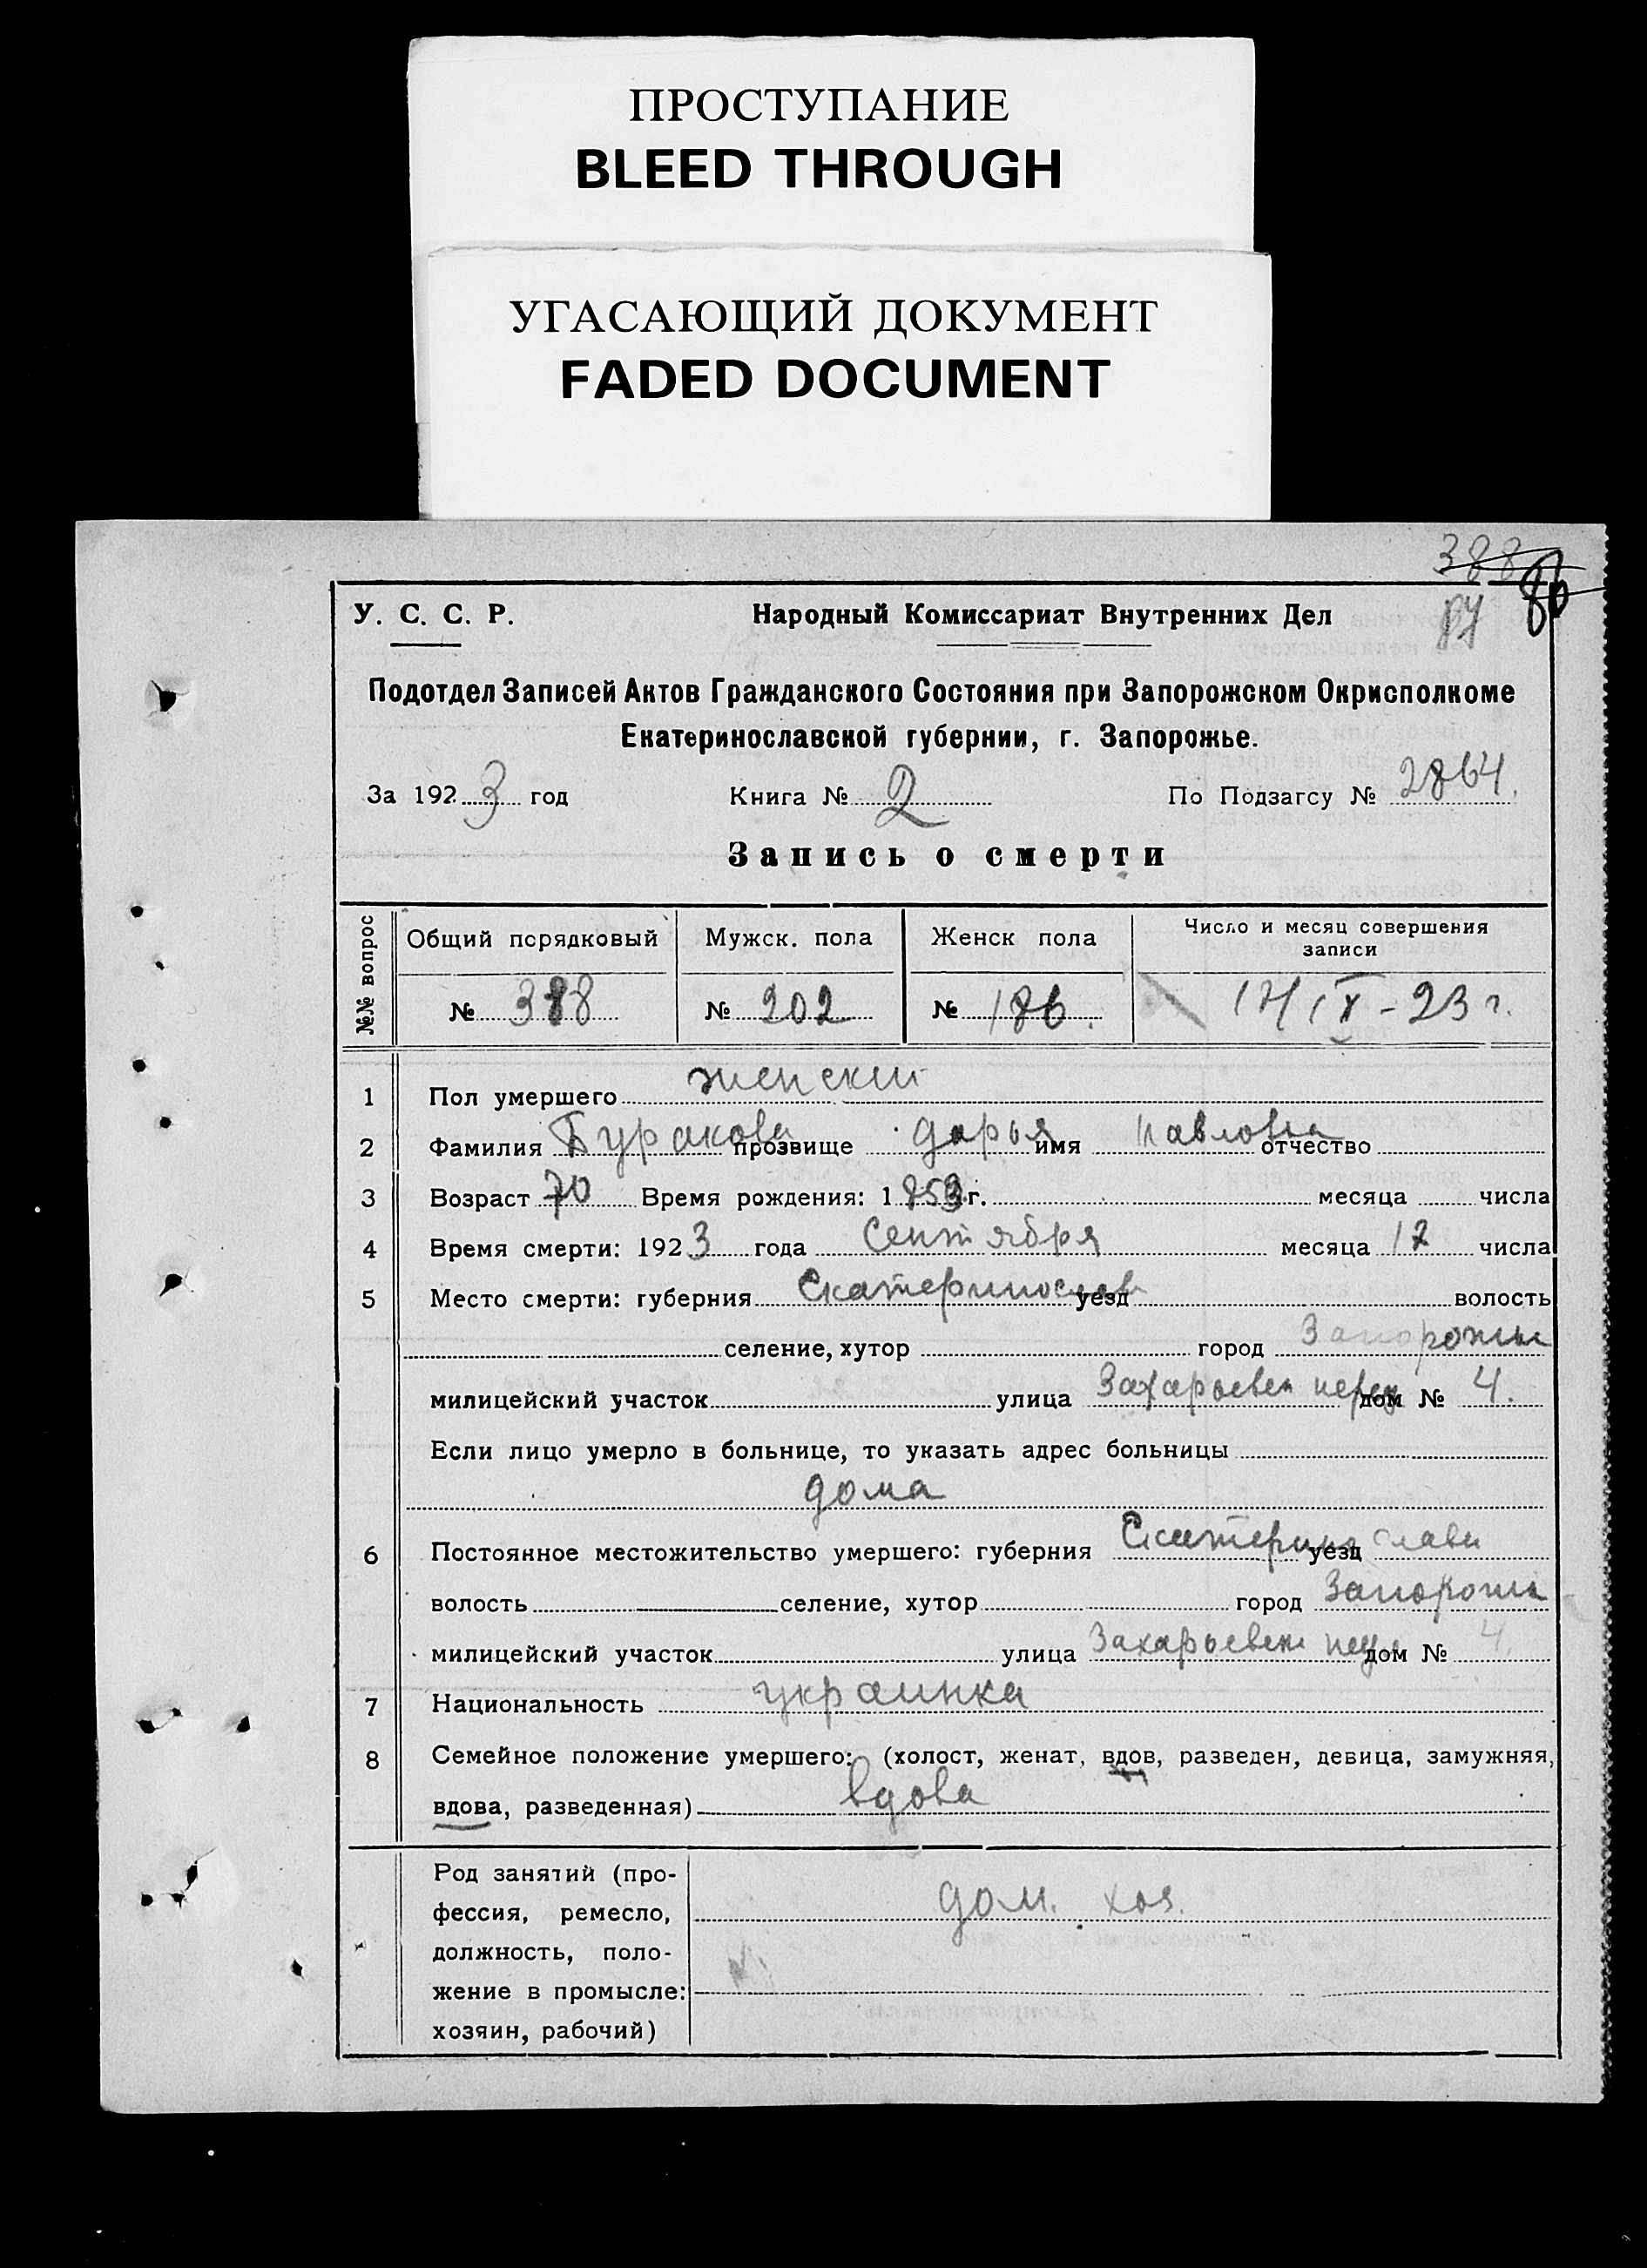 ПРОСТУПАНИЕ
BLEED THROUGH
УГАСАЮЩИЙ ДОКУМЕНТ
FADED DOCUMENT
388
86
У. С. С. Р. Народный Комиссариат Внутренних Дел
Подотдел Записей Актов Гражданского Состояния при Запорожском Окрисполкоме
Екатеринославской губернии, г. Запорожье.
За 1923 год Книга № 2 По Подзагсу № 2864.
Запись о смерти
№№ вопрос Общий порядковый Мужск. пола Женск пола Число и месяц совершения
записи
№ 388 № 202 № 186. IX - 23 г.
1 Пол умершего женский
2 Фамилия Буракова прозвище Дарья имя Павловна отчество
3 Возраст 70 Время рождения: 1853 г. месяца числа
4 Время смерти: 1923 года Сентября месяца 17 числа
5 Место смерти: губерния Екатеринослав уезд волость
селение, хутор город Запорожье
милицейский участок улица Захарьевск перд дом № 4.
Если лицо умерло в больнице, то указать адрес больницы
дома
6 Постоянное местожительство умершего: губерния Екатеринослав уезд
волость селение, хутор город Запорожье
милицейский участок улица Захарьевск дом № 4.
7 Национальность украинка
8 Семейное положение умершего: (холост, женат, вдов, разведен, девица, замужняя,
вдова, разведенная) вдова
Род занятий (про-
фессия, ремесло, дом. хоз.
должность, поло-
жение в промысле:
хозяин, рабочий)